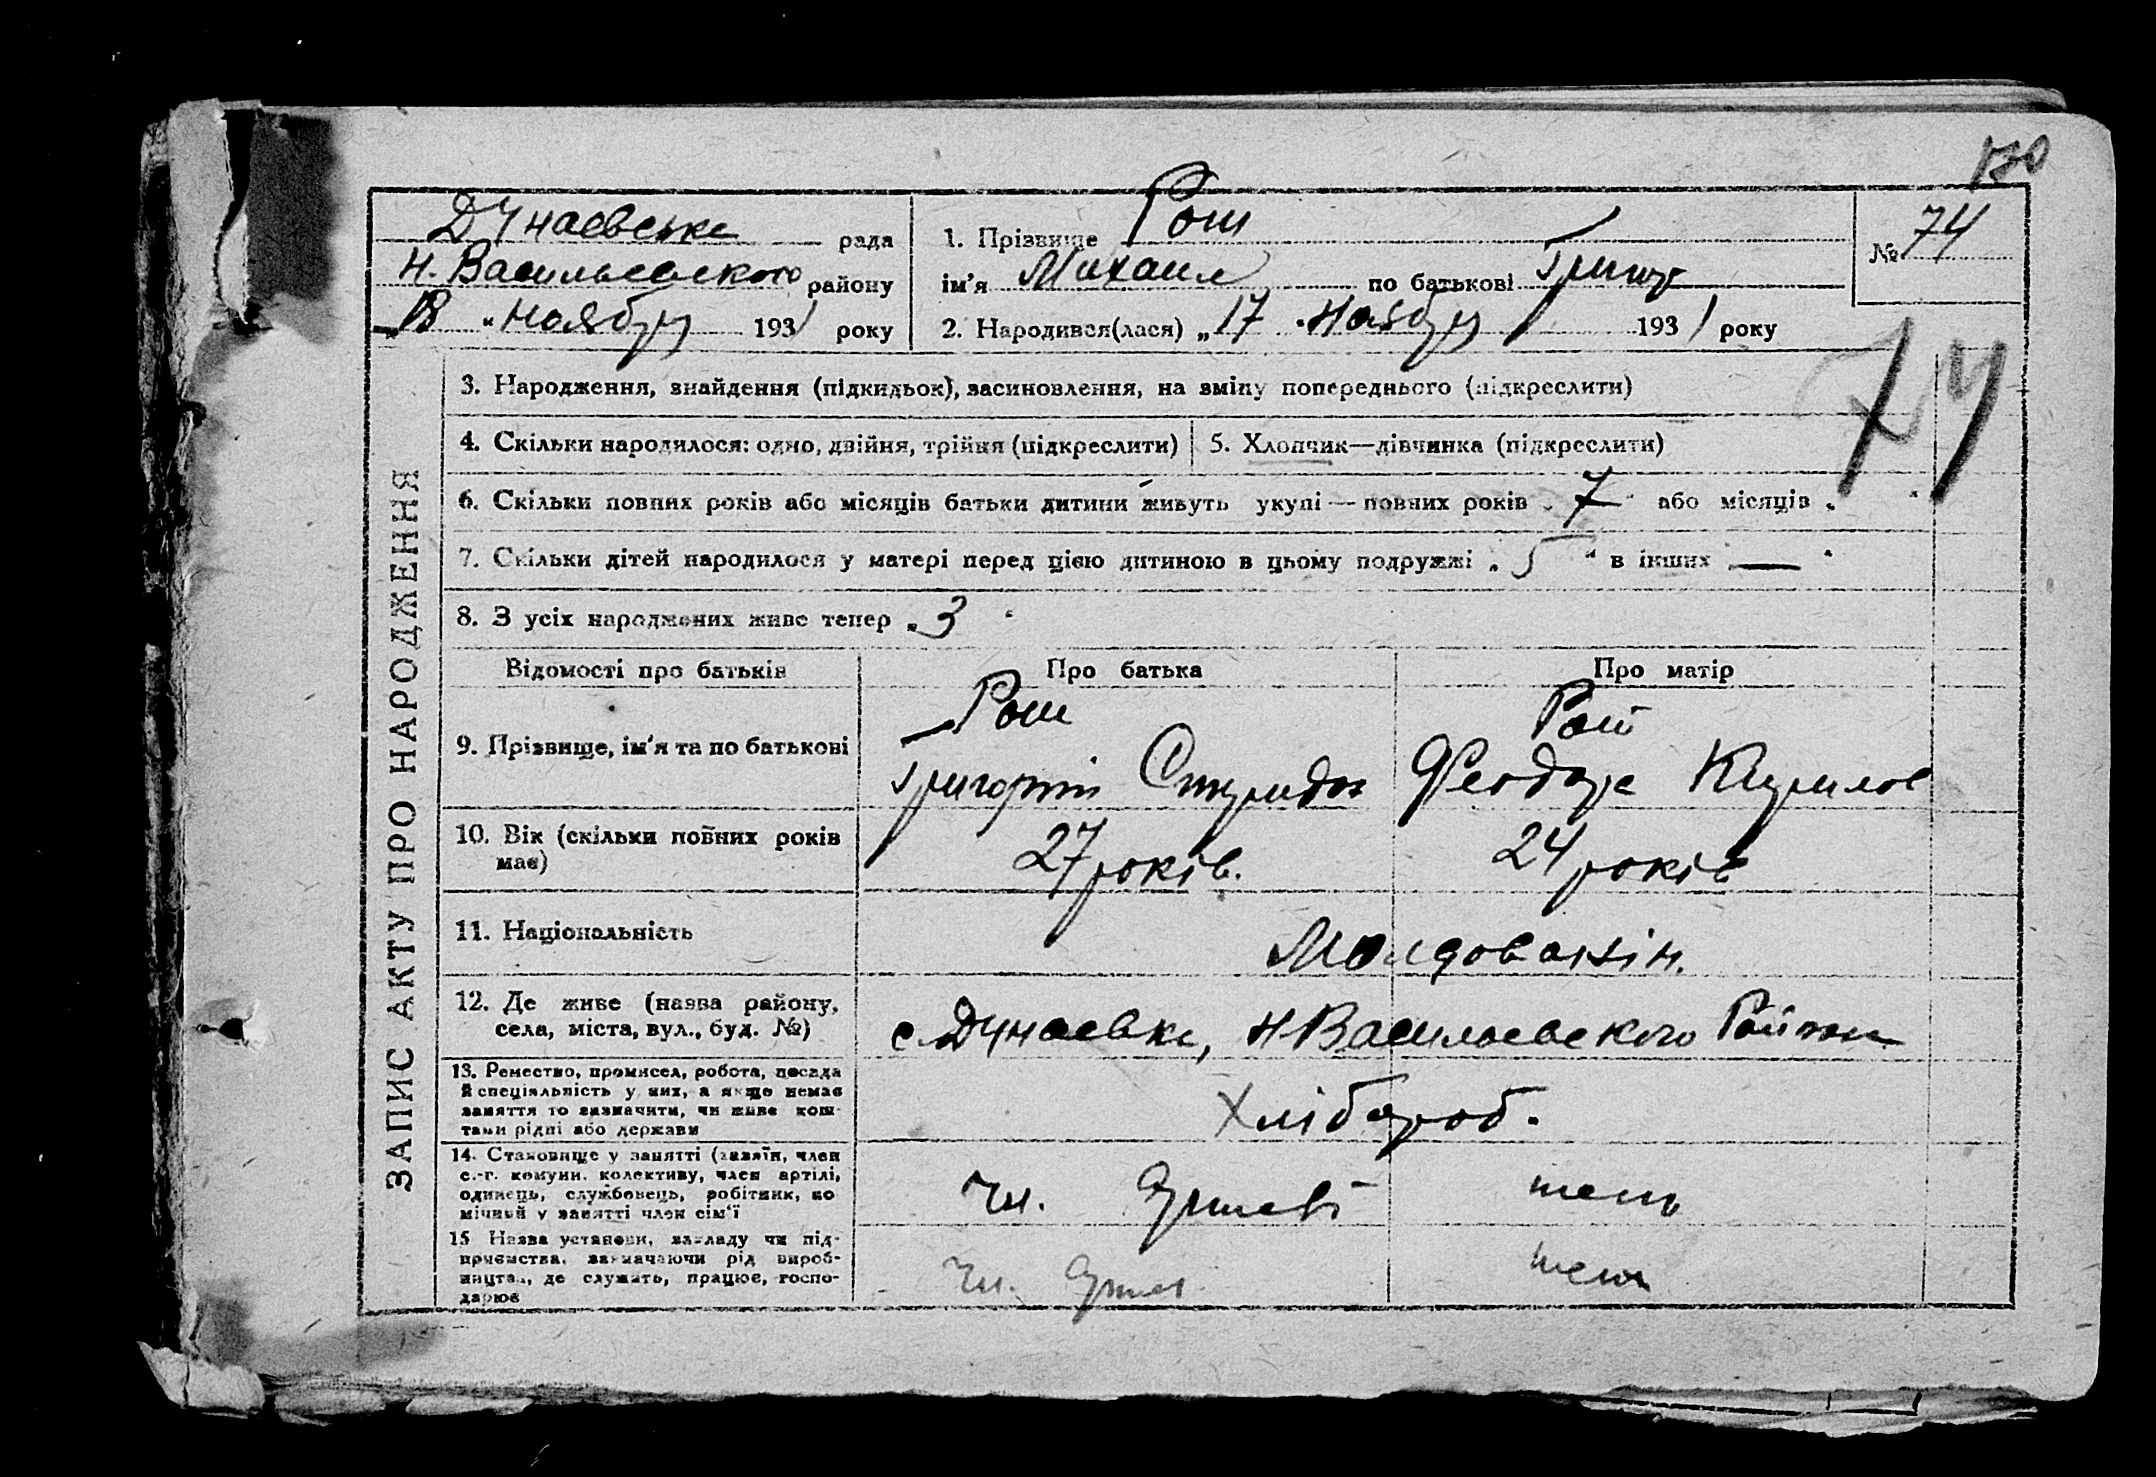 Дунаевська рада
Н. Васильевского району
"18" Ноября 1931 року
1. Прізвище Рош
ім'я Михаил по батькові Григор
2. Народився(лася) "17" Ноября 1931 року
№ 74
74
3. Народження, знайдення (підкидьок), засиновлення, на зміну попереднього (підкреслити)
4. Скільки народилося: одно, двійня, трійня (підкреслити)
5. Хлопчик—дівчинка (підкреслити)
6. Скільки повних років або місяців батьки дитини живуть укупі — повних років „7" або місяців „ "
7. Скільки дітей народилося у матері перед цією дитиною в цьому подружжі „5" в інших „—"
8. З усіх народжених живе тепер „3"
ЗАПИС АКТУ ПРО НАРОДЖЕННЯ
Відомості про батьків
Про батька
Про матір
9. Прізвище, ім'я та по батькові
Рош
Григорій Спиридон
Рош
Феодора Кирилов
10. Вік (скільки повних років
має)
27 років.
24 років
11. Національність
Молдованін.
12. Де живе (назва району,
села, міста, вул., буд. №)
с. Дунаевка, Н Васильевского Район
13. Ремество, промисел, робота, посада
й спеціяльність у них, а якщо немає
заняття то зазначити, чи живе кош-
тами рідні або держави
Хлібороб.
14. Становище у занятті (хазяїн, член
с.-г. комуни, колективу, член артілі,
одинець, службовець, робітник, по
мічний у занятті член сім'ї
Чл. Артелі
тель
15 Назва установи, закладу чи під-
приємства, зазначаючи рід вироб-
ництва, де служить, працює, госпо-
дарює
Чл. Артел